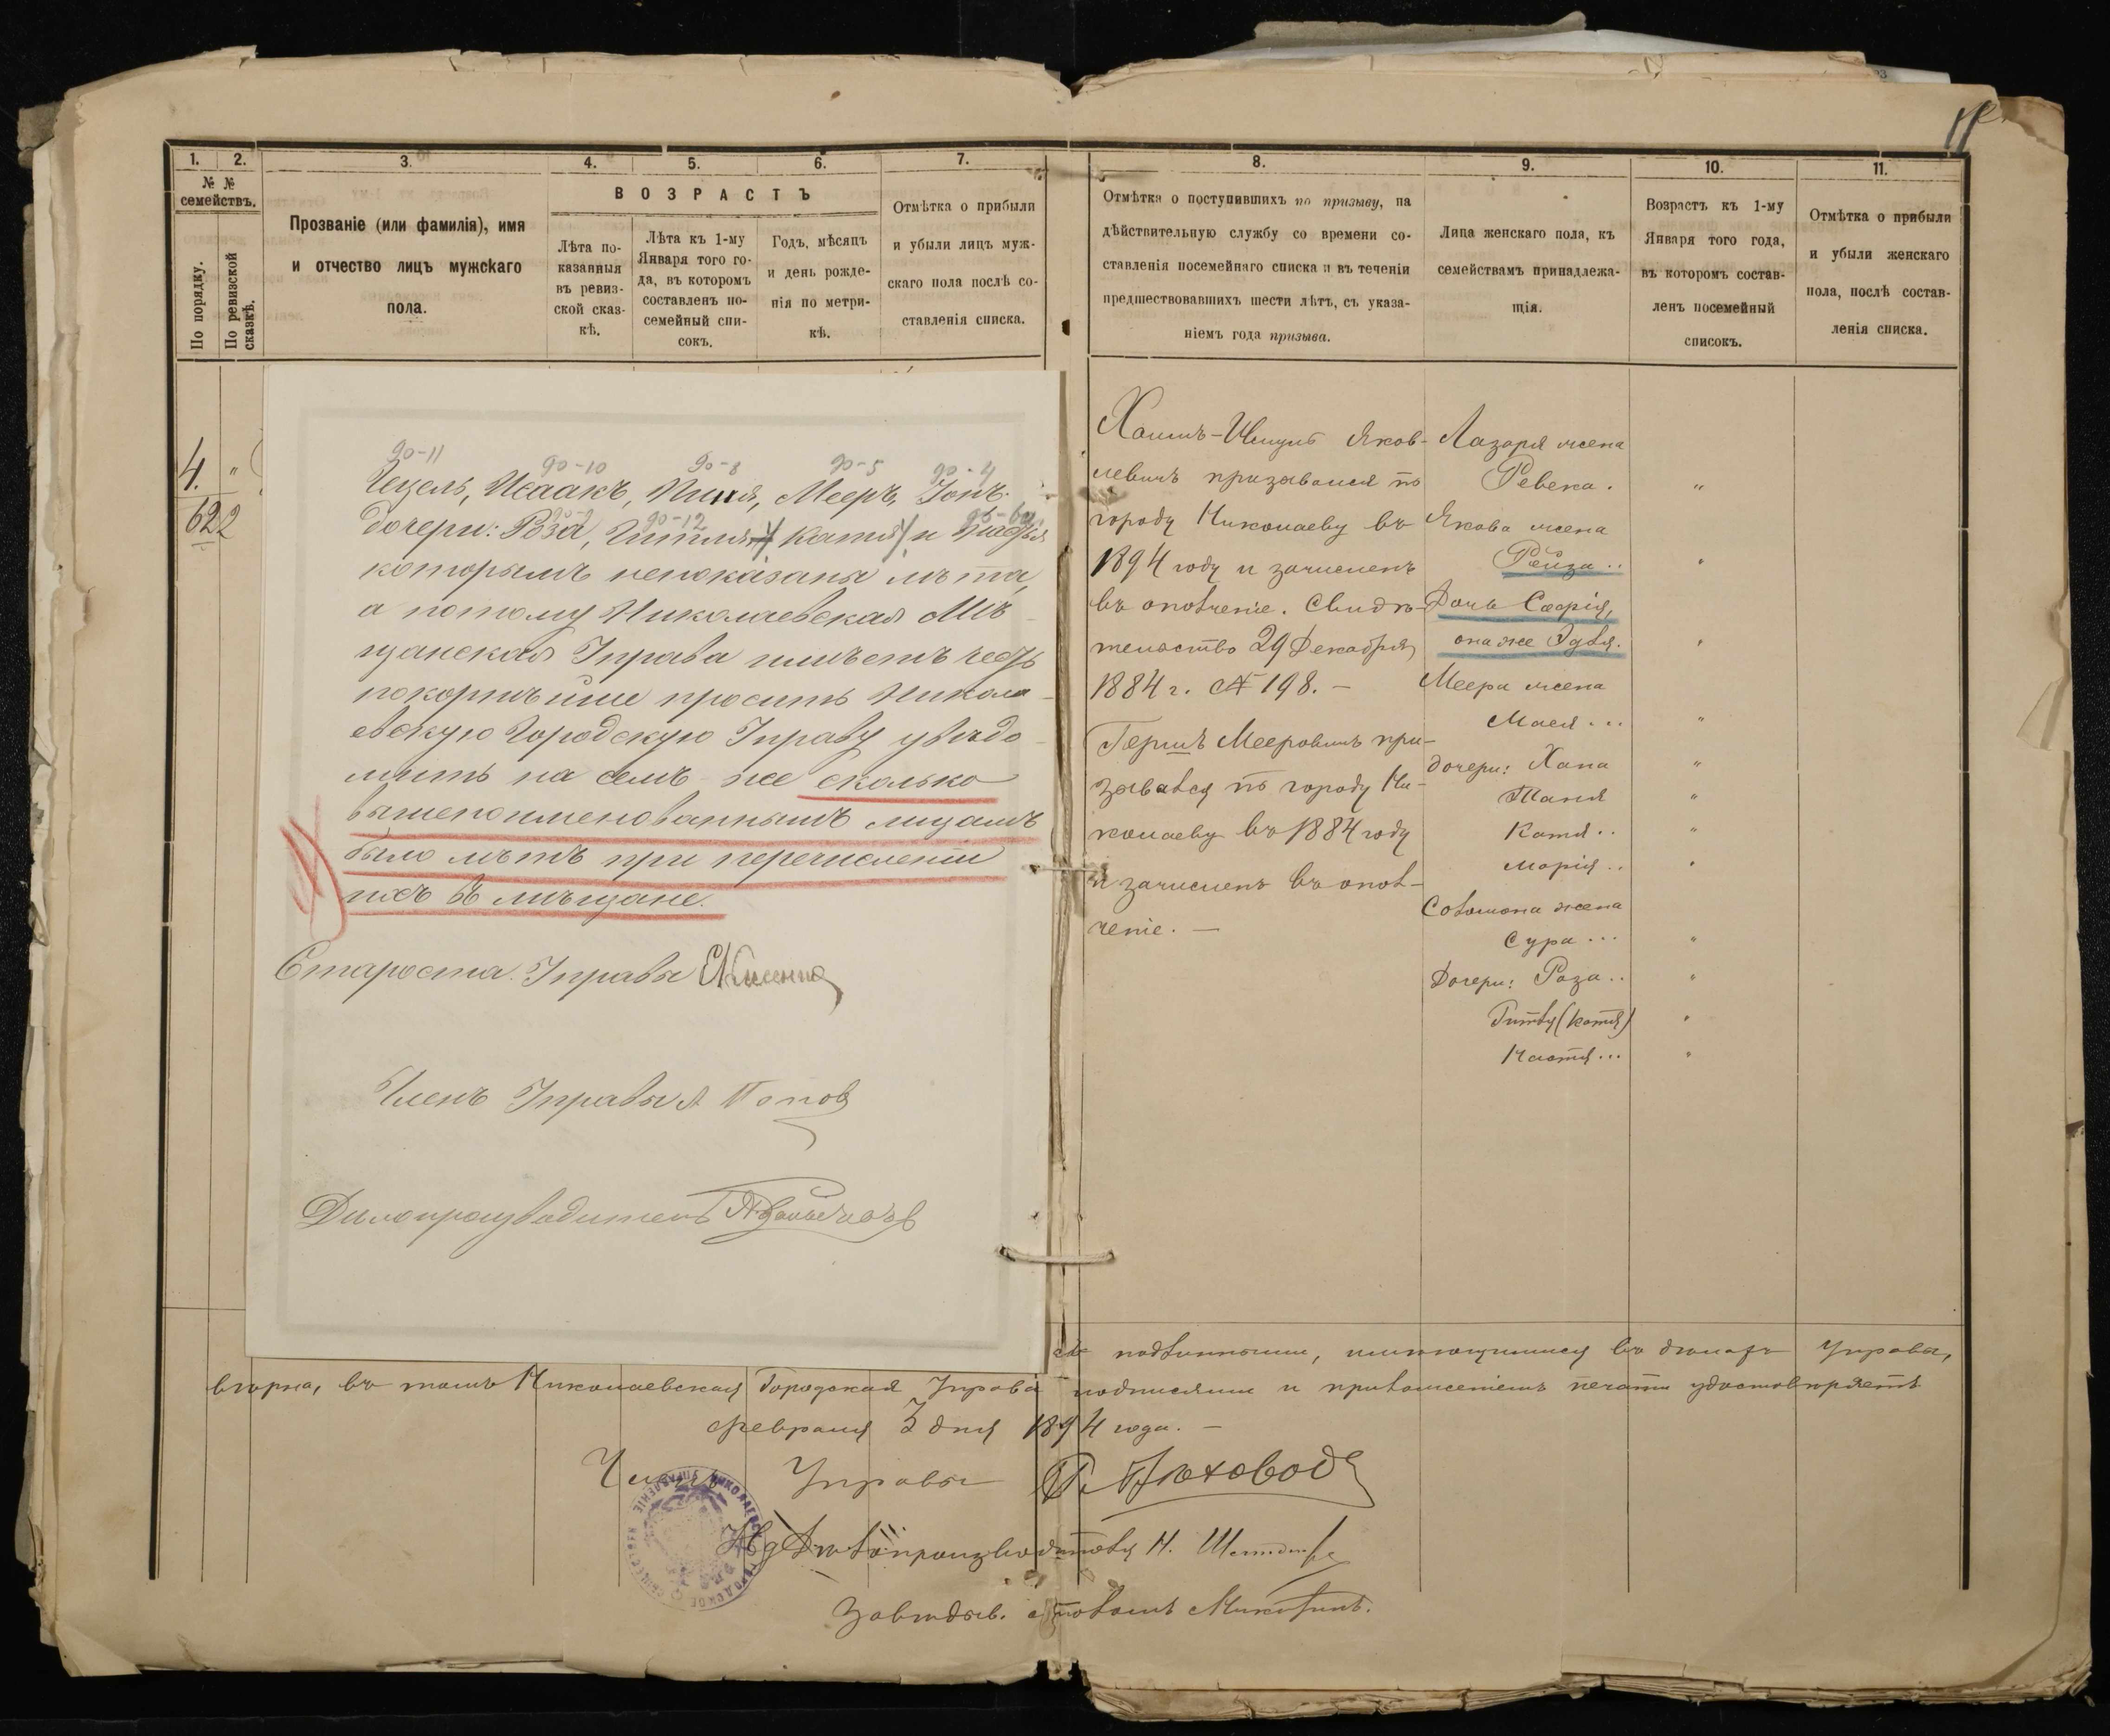 1.
2.
3.
4.
5.
6.
7.
№ №
семействъ.
По порядку.
По ревизской
сказкѣ.
Прозваніе (или фамилія), имя
и отчество лицъ мужскаго
пола.
ВОЗРАСТЪ
Лѣта по-
казанныя
въ ревиз-
ской сказ-
кѣ.
Лѣта къ 1-му
Января того го-
да, въ которомъ
составленъ по-
семейный спи-
сокъ.
Годъ, мѣсяцъ
и день рожде-
нія по метри-
кѣ.
Отмѣтка о прибыли
и убыли лицъ муж-
скаго пола послѣ со-
ставленія списка.
4. "
622
90-11 90-10 90-8 90-5 90-4
Гецель, Исаакъ, Пиня, Мееръ,
90-12
дочери: Роза, Гитля (Катя) и
которымъ непоказаны лѣта,
а потому Николаевская Мѣ-
щанская Управа имѣетъ честь
покорнѣйше просить Никола-
евскую Городскую Управу увѣдо-
мить на семъ же сколько
вышепоименованнымъ лицамъ
было лѣтъ при перечисленіи
ихъ въ мѣщане.
Староста Управы
Членъ Управы А Попов
Дѣлопроизводитель
8.
9.
10.
11.
Отмѣтка о поступившихъ по призыву, на
дѣйствительную службу со времени со-
ставленія посемейнаго списка и въ теченіи
предшествовавшихъ шести лѣтъ, съ указа-
ніемъ года призыва.
Лица женскаго пола, къ
семействамъ принадлежа-
щія.
Возрастъ къ 1-му
Января того года,
въ которомъ состав-
ленъ посемейный
списокъ.
Отмѣтка о прибыли
и убыли женскаго
пола, послѣ состав-
ленія списка.
Хаимъ-Шмуль Яков-
левичъ призывался по
городу Николаеву въ
1894 году и зачисленъ
въ ополченіе. Свидѣ-
тельство 29 Декабря
1884 г. № 198. —
Гершъ Мееровичъ при-
зывался по городу Ни-
колаеву въ 1884 году
и зачисленъ въ опол-
ченіе. —
Лазаря жена
Ревека. "
Якова жена
Рейза.. "
Дочь Софія,
она же Эдля. "
Меера жена
Мася... "
дочери: Хана "
Таня "
Катя.. "
Марія.. "
Соломона жена
Сура... "
Дочери: Роза.. "
Гитля (Катя) "
Настя... "
съ подлинными, имѣющимися въ дѣлахъ Управы,
вѣрна, въ томъ Николаевская Городская Управа подписями и приложеніемъ печати удостовѣряетъ
февраля 3 дня 1894 года. —
Членъ Управы
Дѣлопроизводителя Н.
Завѣдыв. столомъ